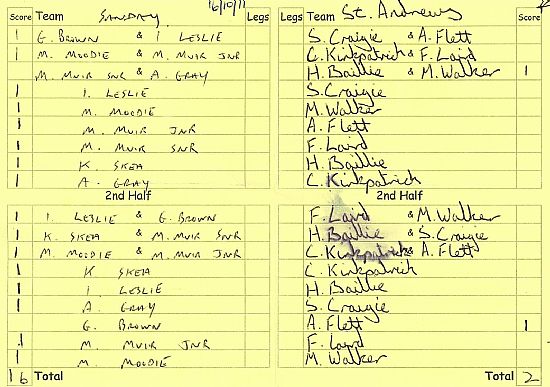 16/10/11
Score Team SANDAY Legs Legs Team St. Andrews Score
1 G. BROWN & I LESLIE S. Craigie & A. Flett
1 M. MOODIE & M. MUIR JNR C. Kirkpatrick & F. Laird
M. MUIR SNR & A. GRAY H. Baillie & M. Walker 1
1 I. LESLIE S. Craigie
1 M. MOODIE M. Walker
1 M. MUIR JNR A. Flett
1 M. MUIR SNR F. Laird
1 K SKEA H. Baillie
1 A. GRAY C. Kirkpatrick
2nd Half 2nd Half
1 I. LESLIE & G. BROWN F. Laird & M. Walker
1 K. SKEA & M. MUIR SNR H. Baillie & S. Craigie
1 M. MOODIE & M. MUIR JNR C. Kirkpatrick & A. Flett
1 K SKEA C. Kirkpatrick
1 I LESLIE H. Baillie
1 A. GRAY S. Craigie
G. BROWN A. Flett 1
1 M. MUIR JNR F. Laird
1 M. MOODIE M. Walker
16 Total Total 2